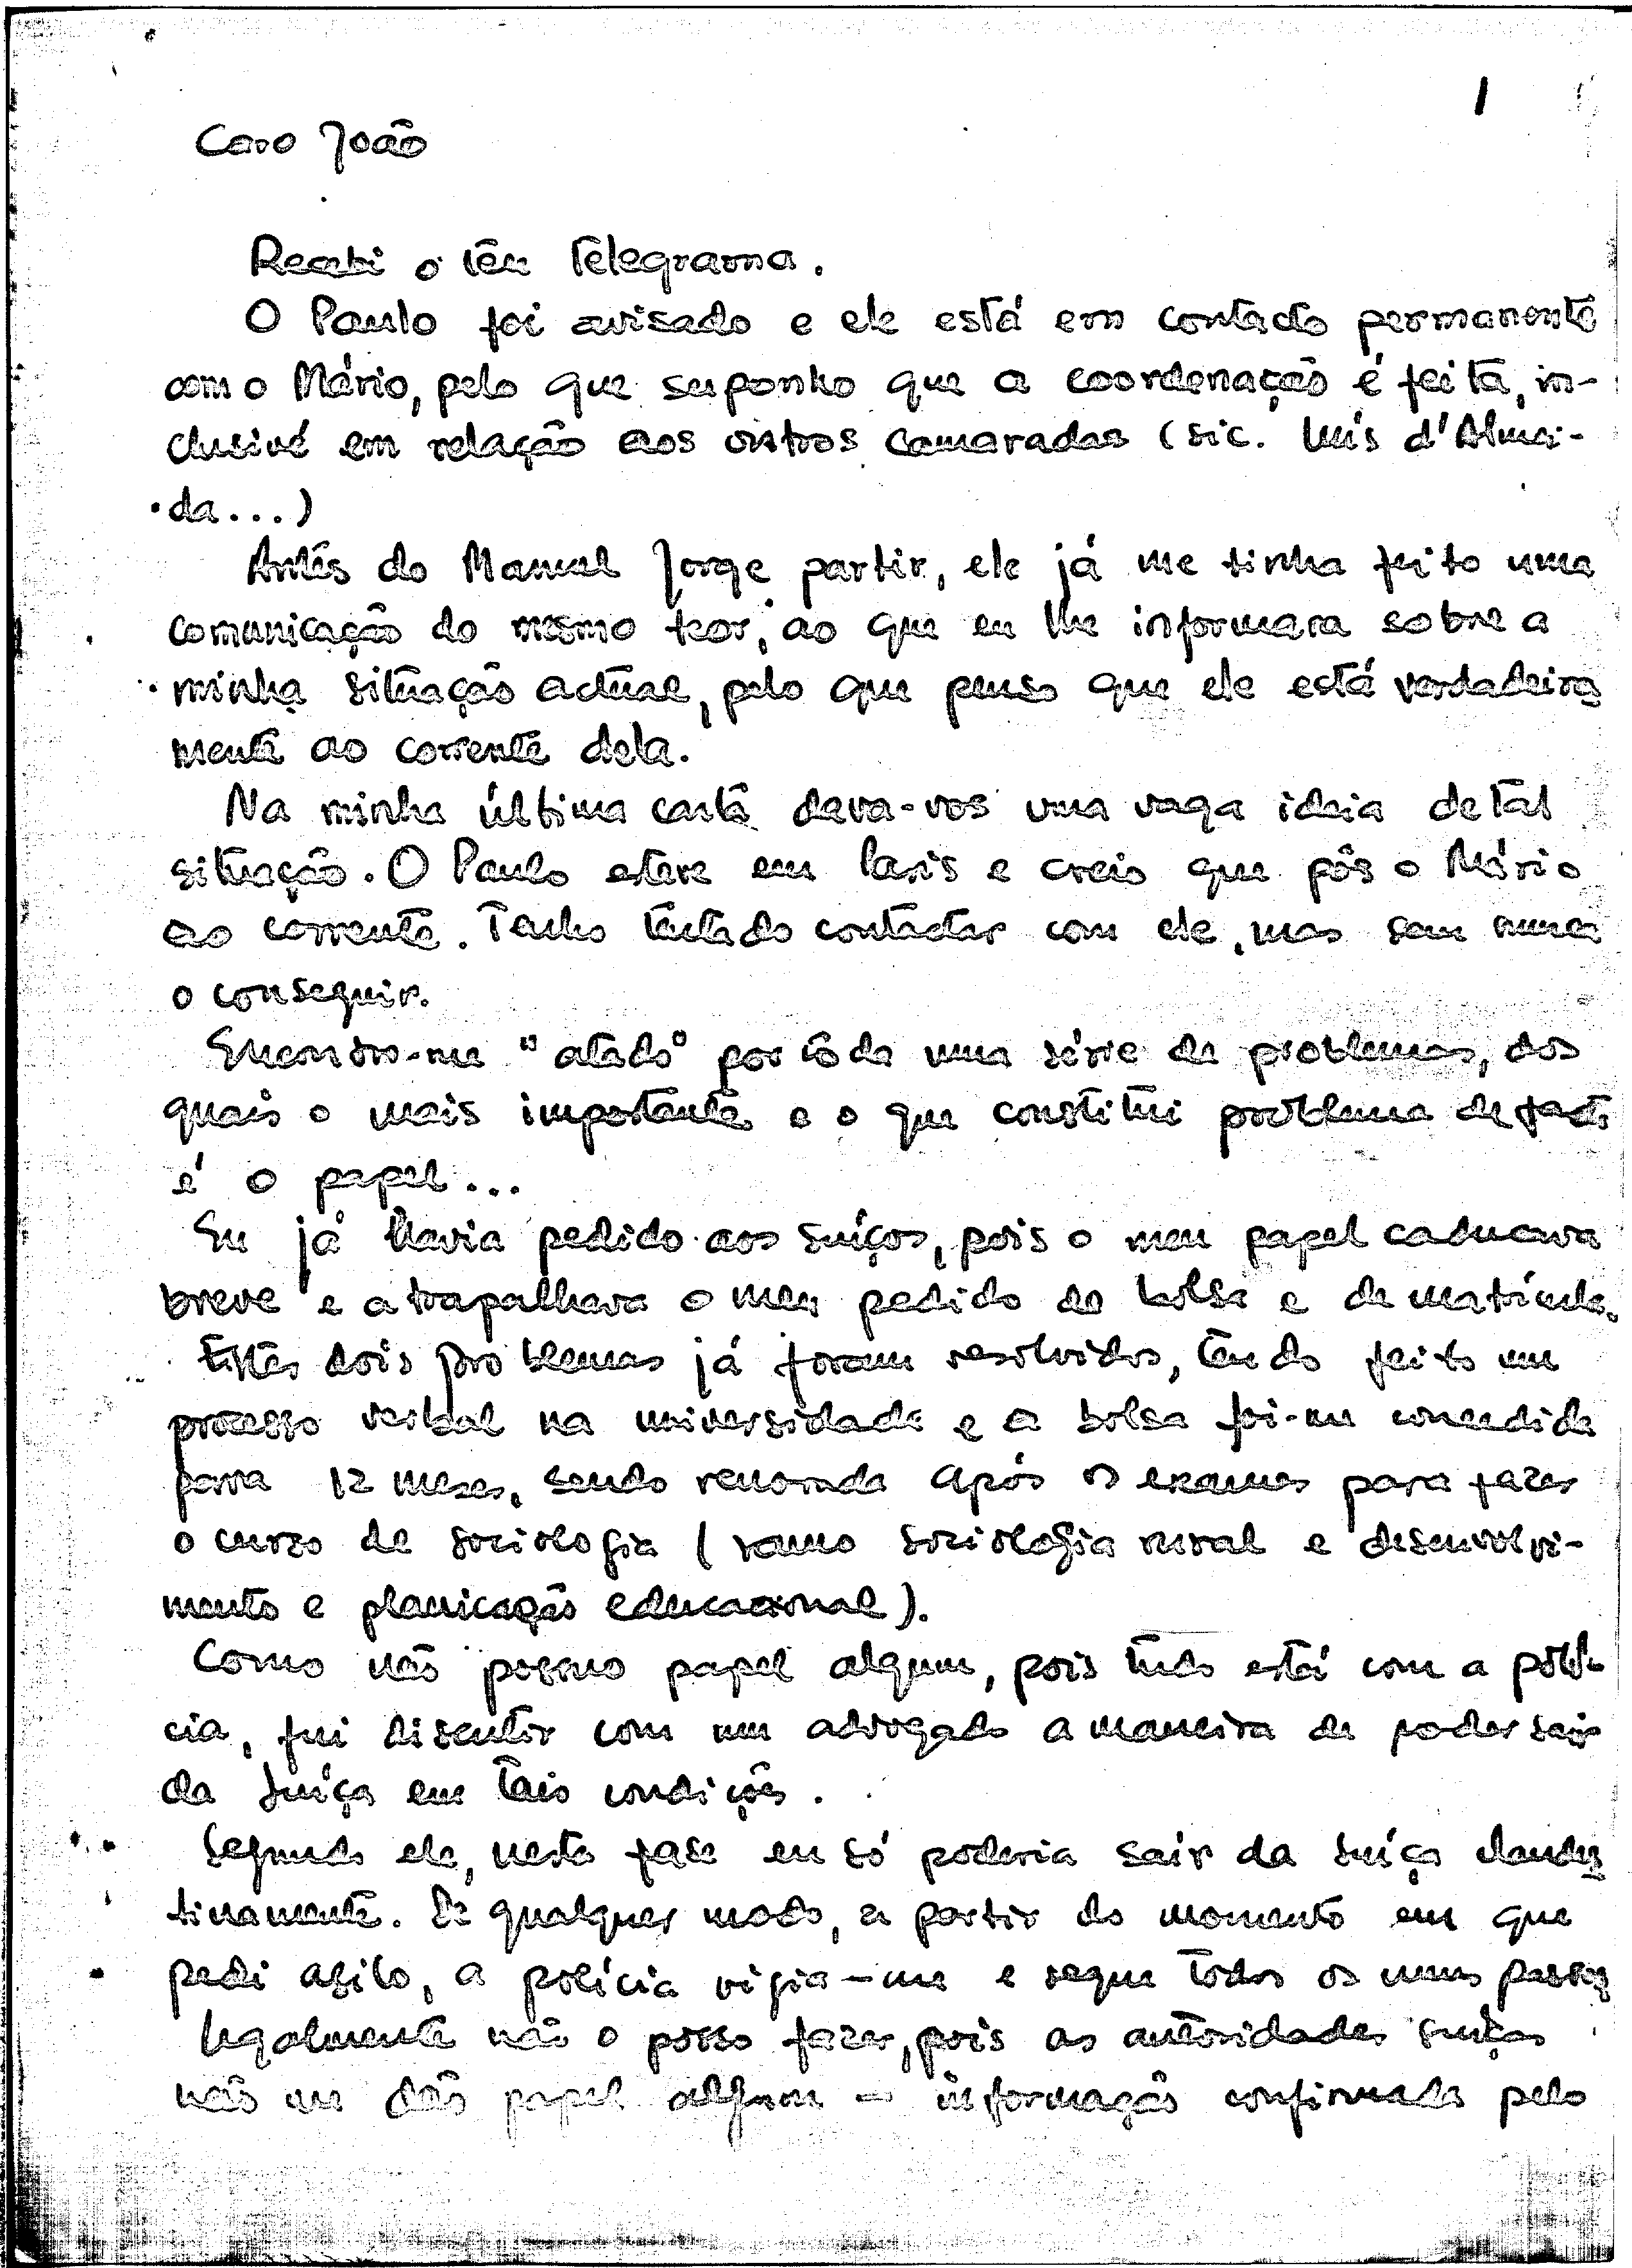 1
Caro João
Recebi o teu telegrama.
O Paulo foi avisado e ele está em contacto permanente
com o Mário, pelo que suponho que a coordenação é feita, in-
clusivé em relação aos outros camaradas (sic. Luís d'Almei-
da...)
Antes do Manuel Jorge partir, ele já me tinha feito uma
comunicação do mesmo teor, ao que eu lhe informara sobre a
minha situação actual, pelo que penso que ele está verdadeira
mente ao corrente dela.
Na minha última carta dava-vos uma vaga ideia de tal
situação. O Paulo esteve em Paris e creio que pôs o Mário
ao corrente. Tenho tentado contactar com ele, mas sem nunca
o conseguir.
Encontro-me "atado" por tôda uma série de problemas, dos
quais o mais importante e o que constitui problema de facto
é o papel...
Eu já havia pedido aos suíços, pois o meu papel caducava
breve e atrapalhava o meu pedido de bolsa e de matrícula.
Estes dois problemas já foram resolvidos, tendo feito um
processo verbal na universidade e a bolsa foi-me concedida
para 12 meses, sendo renovada após os exames para fazer
o curso de sociologia (ramo sociologia rural e desenvolvi-
mento e planicação educacional).
Como não possuo papel algum, pois tudo está com a polí-
cia, fui discutir com um advogado a maneira de poder sair
da Suíça em tais condições.
Segundo ele, nesta fase eu só poderia sair da Suíça clandes
tinamente. De qualquer modo, a partir do momento em que
pedi asilo, a polícia vigia-me e segue todos os meus passos
Legalmente não o posso fazer, pois as autoridades suíças
não me dão papel algum - informação confirmada pelo